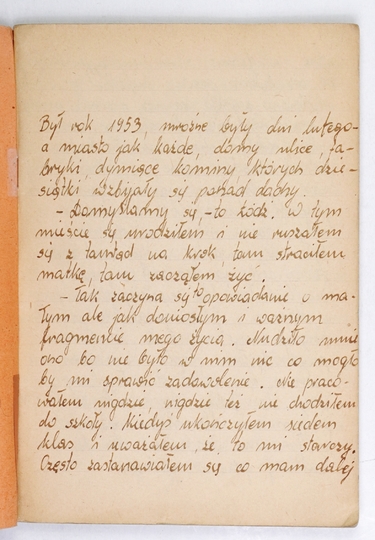 Był rok 1953, mroźne były dni lutego-
a miasto jak każde, domy ulice, fa-
bryki, dymiące kominy których dzie-
siątki wzbijały się ponad dachy.
- Domyślamy się, - to Łódź. W tym
mieście się urodziłem i nie ruszałem
się z tamtąd na krok tam straciłem
matkę, tam zacząłem żyć.
- Tak zaczyna się to opowiadanie o ma-
łym ale jak doniosłym i ważnym
fragmencie mego życia. Nudziło mnie
ono bo nie było w nim nic co mogło
by mi sprawić zadowolenie. Nie praco-
wałem nigdzie, nigdzie też nie chodziłem
do szkoły. Kiedyś ukończyłem siedem
klas i uważałem, że to mi starczy.
Często zastanawiałem się co mam dalej